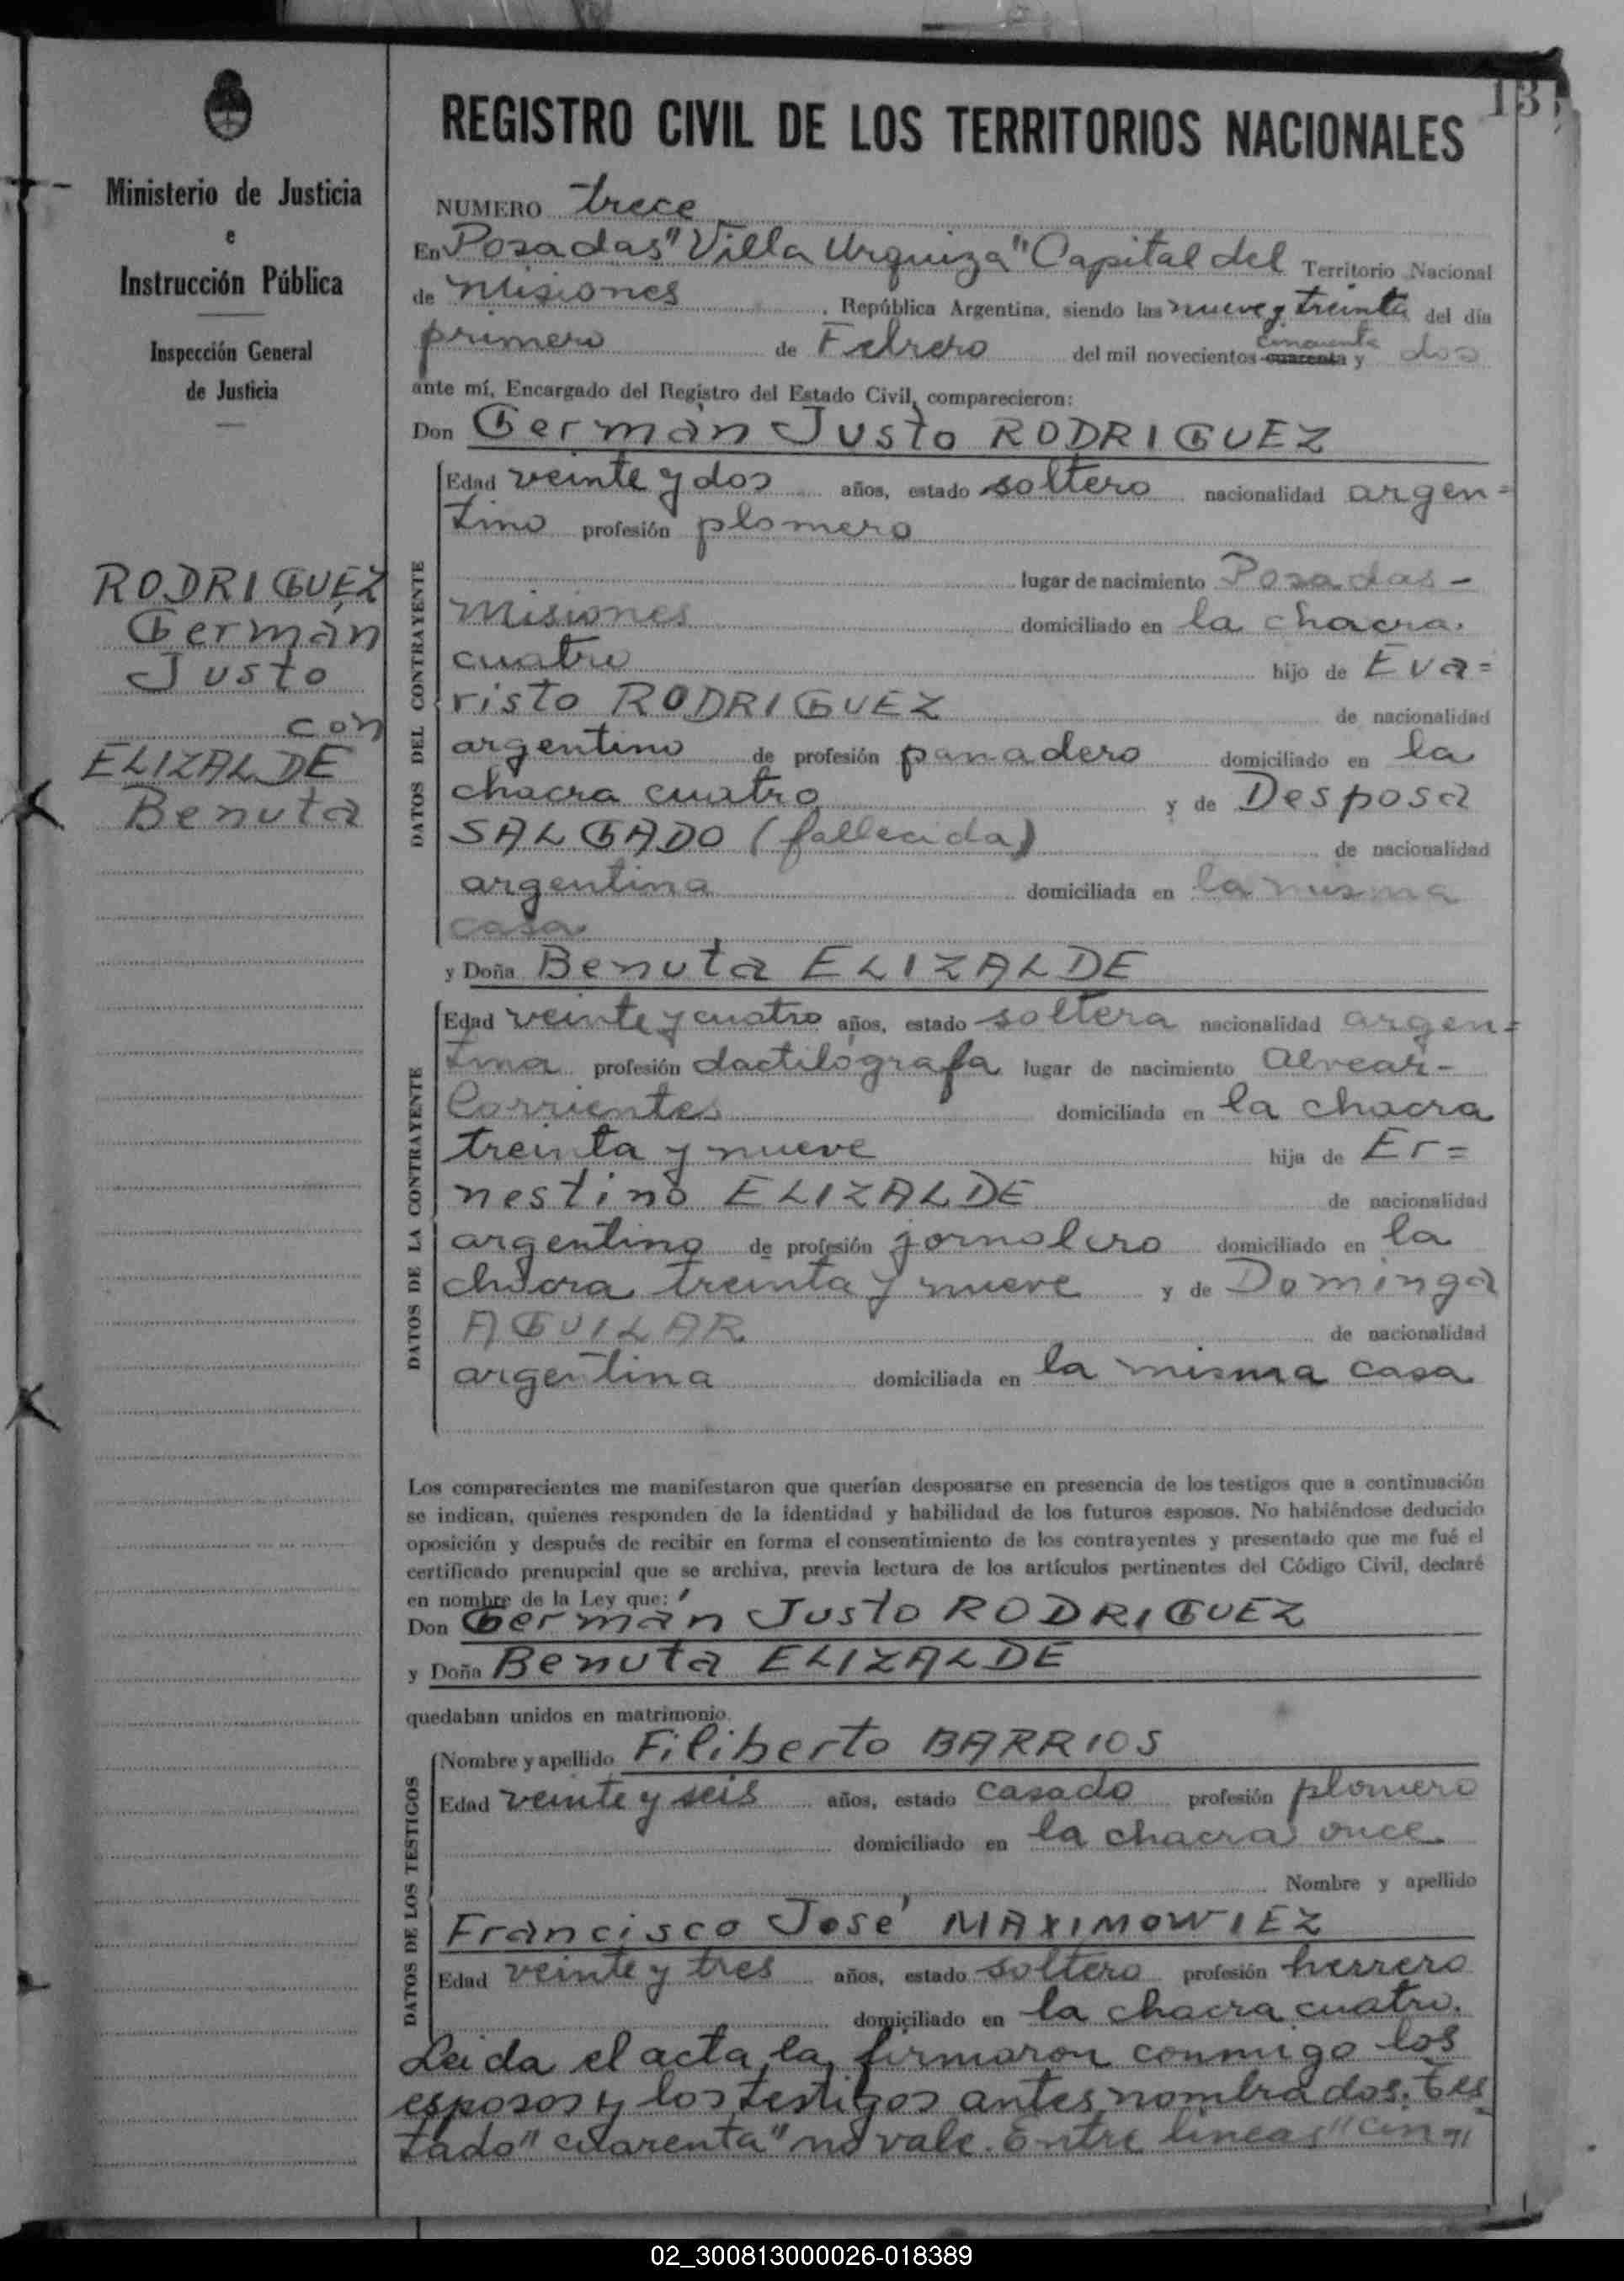 Ministerio de Justicia
e
Instrucción Pública
Inspección General
de Justicia
RODRIGUEZ
Germán
Justo
con
ELIZALDE
Benuta
REGISTRO CIVIL DE LOS TERRITORIOS NACIONALES
13
NUMERO trece
En Posadas "Villa Urquiza" Capital del Territorio Nacional
de Misiones, República Argentina, siendo las nueve y treinta del día
primero de Febrero del mil novecientos cuarenta y cincuenta dos
ante mí, Encargado del Registro del Estado Civil, comparecieron:
Don Germán Justo RODRIGUEZ
DATOS DEL CONTRAYENTE
Edad veinte y dos años, estado soltero nacionalidad argen=
tino profesión plomero
lugar de nacimiento Posadas -
Misiones domiciliado en la chacra.
cuatro hijo de Eva=
risto RODRIGUEZ de nacionalidad
argentino de profesión panadero domiciliado en la
chacra cuatro y de Desposa
SALGADO (fallecida) de nacionalidad
argentina domiciliada en la misma
casa
y Doña Benuta ELIZALDE
DATOS DE LA CONTRAYENTE
Edad veinte y cuatro años, estado soltera nacionalidad argen=
tina profesión dactilógrafa lugar de nacimiento Alvear -
Corrientes domiciliada en la chacra
treinta y nueve hija de Er=
nestino ELIZALDE de nacionalidad
argentino de profesión jornalero domiciliado en la
chacra treinta y nueve y de Dominga
AGUILAR de nacionalidad
argentina domiciliada en la misma casa
Los comparecientes me manifestaron que querían desposarse en presencia de los testigos que a continuación
se indican, quienes responden de la identidad y habilidad de los futuros esposos. No habiéndose deducido
oposición y después de recibir en forma el consentimiento de los contrayentes y presentado que me fué el
certificado prenupcial que se archiva, previa lectura de los artículos pertinentes del Código Civil, declaré
en nombre de la Ley que:
Don Germán Justo RODRIGUEZ
y Doña Benuta ELIZALDE
quedaban unidos en matrimonio.
DATOS DE LOS TESTIGOS
Nombre y apellido Filiberto BARRIOS
Edad veinte y seis años, estado casado profesión plomero
domiciliado en la chacra once
Nombre y apellido
Francisco José MAXIMOWIEZ
Edad veinte y tres años, estado soltero profesión herrero
domiciliado en la chacra cuatro.
Leida el acta, la firmaron conmigo los
esposos y los testigos antes nombrados. Tes
tado "cuarenta" no vale. Entre lineas "cin
02_300813000026-018389